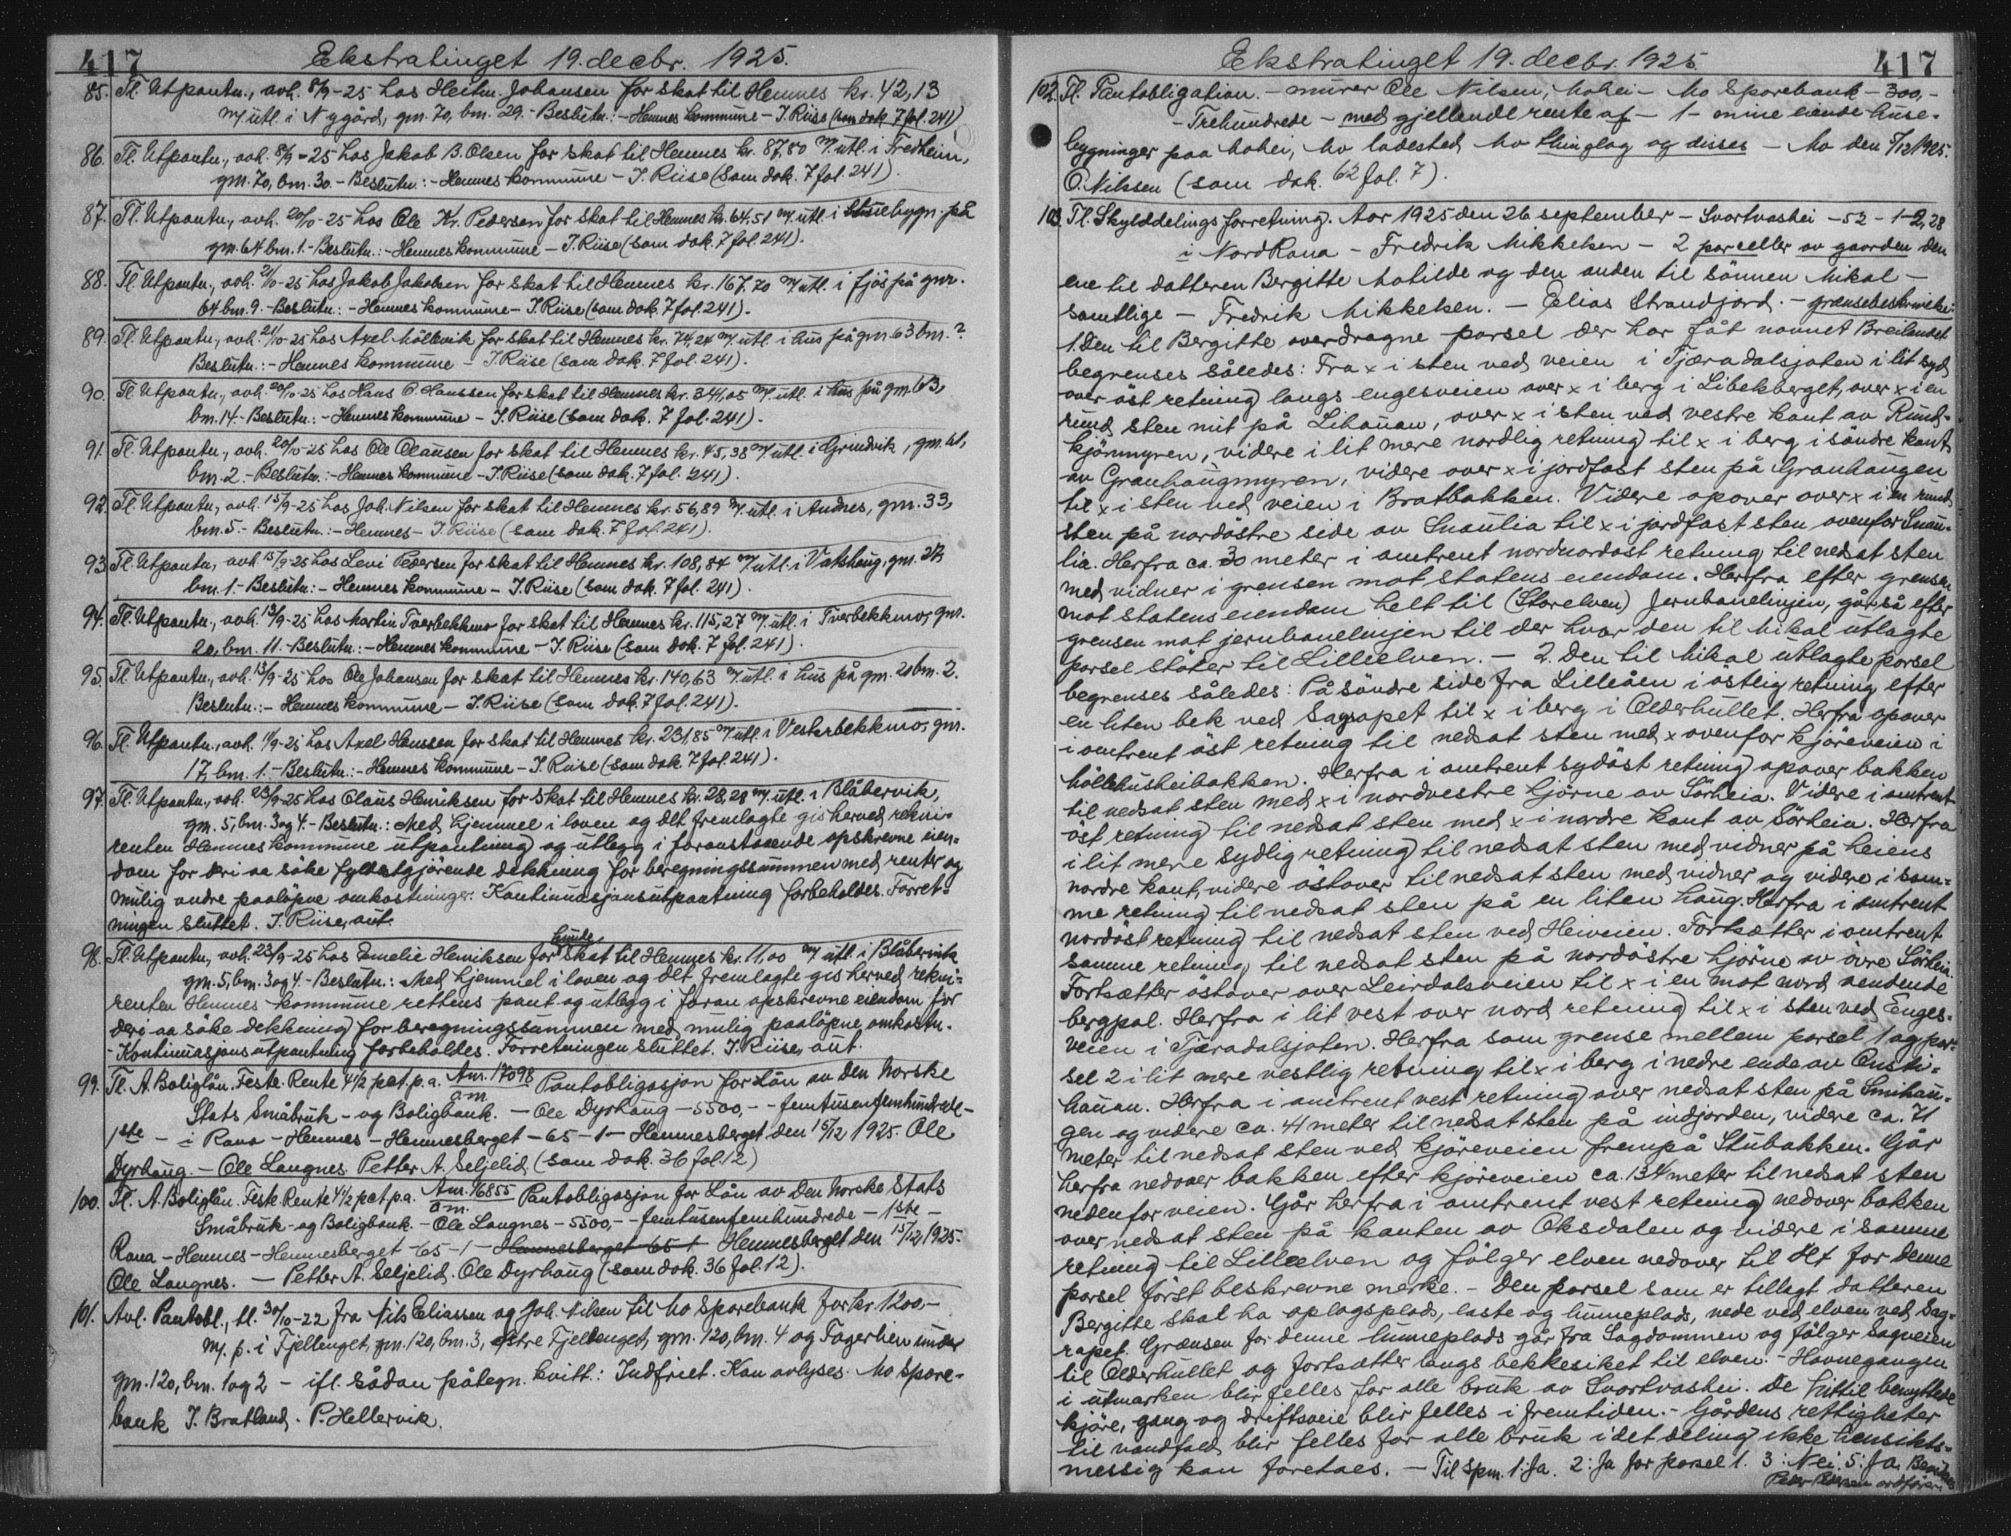 417 Ekstratinget 19. decbr. 1925.
85. Tl. Utpantn., avh. 8/9-25 hos Heitm. Johansen for skat til Hemnes kr. 42,13
m/utl. i Nygård, gnr. 70, bnr. 29. - Beslutn.: - Hemnes kommune - J. Riise (som dok. 7 fol. 241)
86. Tl. Utpantn., avh. 8/9-25 hos Jakob B. Olsen for skat til Hemnes kr. 87,80 m/utl. i Fredheim,
gnr. 70, bnr. 30. - Beslutn.: - Hemnes kommune - J. Riise (som dok. 7 fol. 241).
87. Tl. Utpantn., avh. 20/10-25 hos Ole Kr. Pedersen for skat til Hemnes kr. 64,51 m/utl. i Stuebygn. på
gnr. 64 bnr. 1. - Beslutn.: - Hemnes kommune - J. Riise (som dok. 7 fol. 241).
88. Tl. Utpantn., avh. 21/10-25 hos Jakob Jakobsen for skat til Hemnes kr. 167,70 m/utl. i fjös på gnr.
64 bnr. 9. - Beslutn.: - Hemnes kommune - J. Riise (som dok. 7 fol. 241).
89. Tl. Utpantn., avh. 21/10-25 hos Axel Möllevik for skat til Hemnes kr. 74,24 m/utl. i hus på gnr. 63 bnr. ?
Beslutn.: - Hemnes kommune - J. Riise (som dok. 7 fol. 241).
90. Tl. Utpantn., avh. 20/10-25 hos Hans O. Hanssen for skat til Hemnes kr. 341,05 m/utl. i hus på gnr. 63,
bnr. 14 - Beslutn.: - Hemnes kommune - J. Riise (som dok. 7 fol. 241).
91. Tl. Utpantn., avh. 20/10-25 hos Ole Claüsen for skat til Hemnes kr. 45,38 m/utl. i Grindvik, gnr. 61,
bnr. 2. - Beslutn.: - Hemnes kommune - J. Riise (som dok. 7 fol. 241).
92. Tl. Utpantn., avh. 15/9-25 hos Joh. Nilsen for skat til Hemnes kr. 56,89 m/utl. i Andnes, gnr. 33,
bnr. 5. - Beslutn.: - Hemnes - J. Riise (som dok. 7 fol. 241).
93. Tl. Utpantn., avh. 15/9-25 hos Levi Pedersen for skat til Hemnes kr. 108,84 m/utl. i Vakshaug, gnr.
bnr. 1. - Beslutn.: - Hemnes kommune - J. Riise (som dok. 7 fol. 241).
94. Tl. Utpantn., avh. 13/9-25 hos Martin Tverbekkmo for skat til Hemnes kr. 115,27 m/utl. i Tverbekkmo, gnr.
20, bnr. 11. - Beslutn.: - Hemnes kommune - J. Riise (som dok. 7 fol. 241).
95. Tl. Utpantn., avh. 13/9-25 hos Ole Johansen for skat til Hemnes kr. 140,63 m/utl. i hus på gnr. 20 bnr. 2.
Beslutn.: - Hemnes kommune - J. Riise (som dok. 7 fol. 241).
96. Tl. Utpantn., avh. 11/9-25 hos Axel Hanssen for skat til Hemnes kr. 231,85 m/utl. i Vesterbekkmo, gnr.
17, bnr. 1. - Beslutn.: - Hemnes kommune - J. Riise (som dok. 7 fol. 241).
97. Tl. Utpantn., avh. 23/9-25 hos Claus Henriksen for skat til Hemnes kr. 28,28 m/utl. i Blåbervik,
gnr. 5, bnr. 3 og 4. - Beslutn.: Med hjemmel i loven og det fremlagte gis herved rekvi-
renten Hemnes kommune utpantning og utlegg i foranstaaende opskrevne eien-
dom for deri aa söke fyldestgjörende dekkning for beregningssummen med renter og
mulig andre paalöpne omkostninger. Kontinuasjonsutpantning forbeholdes. Forret-
ningen sluttet. J. Riise, aut.
98. Tl. Utpantn., avh. 23/9-25 hos Emelie Henriksen for hunde skat til Hemnes kr. 11,00 m/utl. i Blåbervik
gnr. 5, bnr. 3 og 4. - Beslutn.: Med hjemmel i loven og det fremlagte gis herved rekvi-
renten Hemnes kommune rettens pant og utlegg i foran opskrevne eiendom for
deri aa söke dekkning for beregningssummen med mulig paalöpne omkostn.
- Kontinuasjonsutpantning forbeholdes. Forretningen sluttet. J. Riise, aut.
99. Tl. A. Boliglån. Feste. Rente 4 1/2 pct. p. a. Am. 17098 am Pantobligasjon for Lån av Den Norske
Stats Småbruk - og Boligbank. - Ole Dyrhaug - 5500,- - femtusenfemhundrede -
1ste - i Rana - Hemnes - Hemnesberget - 65 - 1 - Hemnesberget den 15/12 1925. Ole
Dyrhaug. - Ole Langnes. Petter A. Seljelid (som dok. 36 fol. 12)
100. Tl. A. Boliglån. Feste. Rente 4 1/2 pct p.a. Am. 16855 am Pantobligasjon for Lån av Den Norske Stats
Småbruk - og Boligbank. - Ole Langnes - 5500,- - femtusenfemhundrede - 1ste -
Rana - Hemnes - Hemnesberget - 65 - 1 - Hemnesberget 65 1 Hemnesberget den 15/12 1925.
Ole Langnes. - Petter A. Seljelid. Ole Dyrhaug (som dok. 36 fol. 12).
101. Avl. Pantobl., tl. 30/10-22 fra Nils Eliassen og Joh. Nilsen til Mo Sparebank for kr. 1200,-
m/ p. i Fjellenget, gnr. 120, bnr. 3, Östre Fjellenget, gnr. 120, bnr. 4 og Fagerlien under
gnr. 120, bnr. 1 og 2 - ifl. sådan påtegn. kvitt.: Indfriet. Kan avlyses. Mo Spare-
bank J. Bratland. P. Hellervik.
Ekstratinget 19. decbr. 1925. 417
102. Tl. Pantobligation. - murer Ole Nilsen, Mohei - Mo Sparebank - 300,-
- Trehundrede - med gjellende rente af - 1 - mine eiende huse-
bygninger paa Mohei, Mo ladested Mo thinglag og disses - Mo den 7/12 1925.
O. Nilssen (som dok. 62 fol. 7).
103. Tl. Skylddelingsforretning. Aar 1925 den 26 september - Svortvashei - 52 - 1 - 2,28
i NordRana - Fredrik Mikkelsen - 2 parceller av gaarden den
ene til datteren Bergitte Matilde og den anden til sönnen Mikal -
samtlige - Fredrik Mikkelsen. - Elias Strandjord. - grænsebeskrivelse:
1. Den til Bergitte overdragne parsel der har fåt navnet Breilandet
begrenses således: Fra x i sten ved veien i Tjæradalsjoten i lit syd
over öst retning langs engesveien over x i berg i Libekberget, over x i en
rund sten mit på Libauan, over x i sten ved vestre kant av Rund-
kjönmyren, videre i lit mere nordlig retning til x i berg i söndre kant
av Granhaugmyren, videre over x i jordfast sten på Granhaugen
til x i sten ved veien i Bratbakken. Videre opover over x i en rund
sten på nordöstre side av Snaulia til x i jordfast sten ovenfor Snau-
lia. Herfra ca. 30 meter i omtrent nordnordöst retning til nedsat sten
med vidner i grensen mot statens eiendom. Herfra efter grensen
mot statens eiendom helt til (Storelven) Jernbanelinjen, går så efter
grensen mot jernbanelinjen til der hvor den til Mikal utlagte
parsel støter til Lilleelven. - 2. Den til Mikal utlagte parsel
begrenses således: På söndre side fra Lilleåen i östlig retning efter
en liten bek ved Sagrapet til x i berg i Olderhullet. Herfra opover
i omtrent öst retning til nedsat sten med x ovenfor kjöreveien i
hållehusheibakken. Herfra i omtrent sydöst retning opover bakken
til nedsat sten med x i nordvestre hjörne av Sörheia. Videre i omtrent
öst retning til nedsat sten med x i nordre kant av Sörheia. Herfra
i lit mere sydlig retning til nedsat sten med vidner på heiens
nordre kant, videre östover til nedsat sten med vidner og videre i sam-
me retning til nedsat sten på en liten haug. Herfra i omtrent
nordöst retning til nedsat sten ved Heiveien. Fortsætter i omtrent
samme retning til nedsat sten på nordöstre hjörne av övre Sörheia.
Fortsætter östover over Leirdalsveien til x i en mot nord vendende
bergpal. Herfra i lit vest over nord retning til x i sten ved Enges-
veien i Tjæradalsjoten. Herfra som grense mellem parsel 1 og par-
sel 2 i lit mere vestlig retning til x i berg i nedre ende av Onski-
hauan. Herfra i omtrent vest retning over nedsat sten på Smihau-
gen og videre ca. 41 meter til nedsat sten på indjorden, videre ca. 71
meter til nedsat sten ved kjöreveien frempå Stubakken. Går
herfra nedover bakken efter kjöreveien ca. 134 meter til nedsat sten
nedenfor veien. Går herfra i omtrent vest retning nedover bakken
over nedsat sten på kanten av Oksdalen og videre i samme
retning til Lilleelven og fölger elven nedover til det for denne
parsel först beskrevne merke. - Den parsel som er tillagt datteren
Bergitte skal ha oplagsplads, laste og lunneplads, nede ved elven ved Sag-
rapet. Grænsen for denne lunneplads går fra Sagdammen og fölger Sagveien
til Olderhullet og fortsætter langs bekkesiket til elven. - Havnegangen
i utmarken blir felles for alle bruk av Svortvashei. De hittil benyttede
kjöre, gang og driftsveie blir felles i fremtiden. - Gårdens rettigheter
til vandfald blir felles for alle bruk idet deling ikke hensikts-
messig kan foretaes. - Til Spm. 1: Ja. 2: Ja for parsel 1. 3: Nei. 5: Ja.
Peder Pedersen ordförer